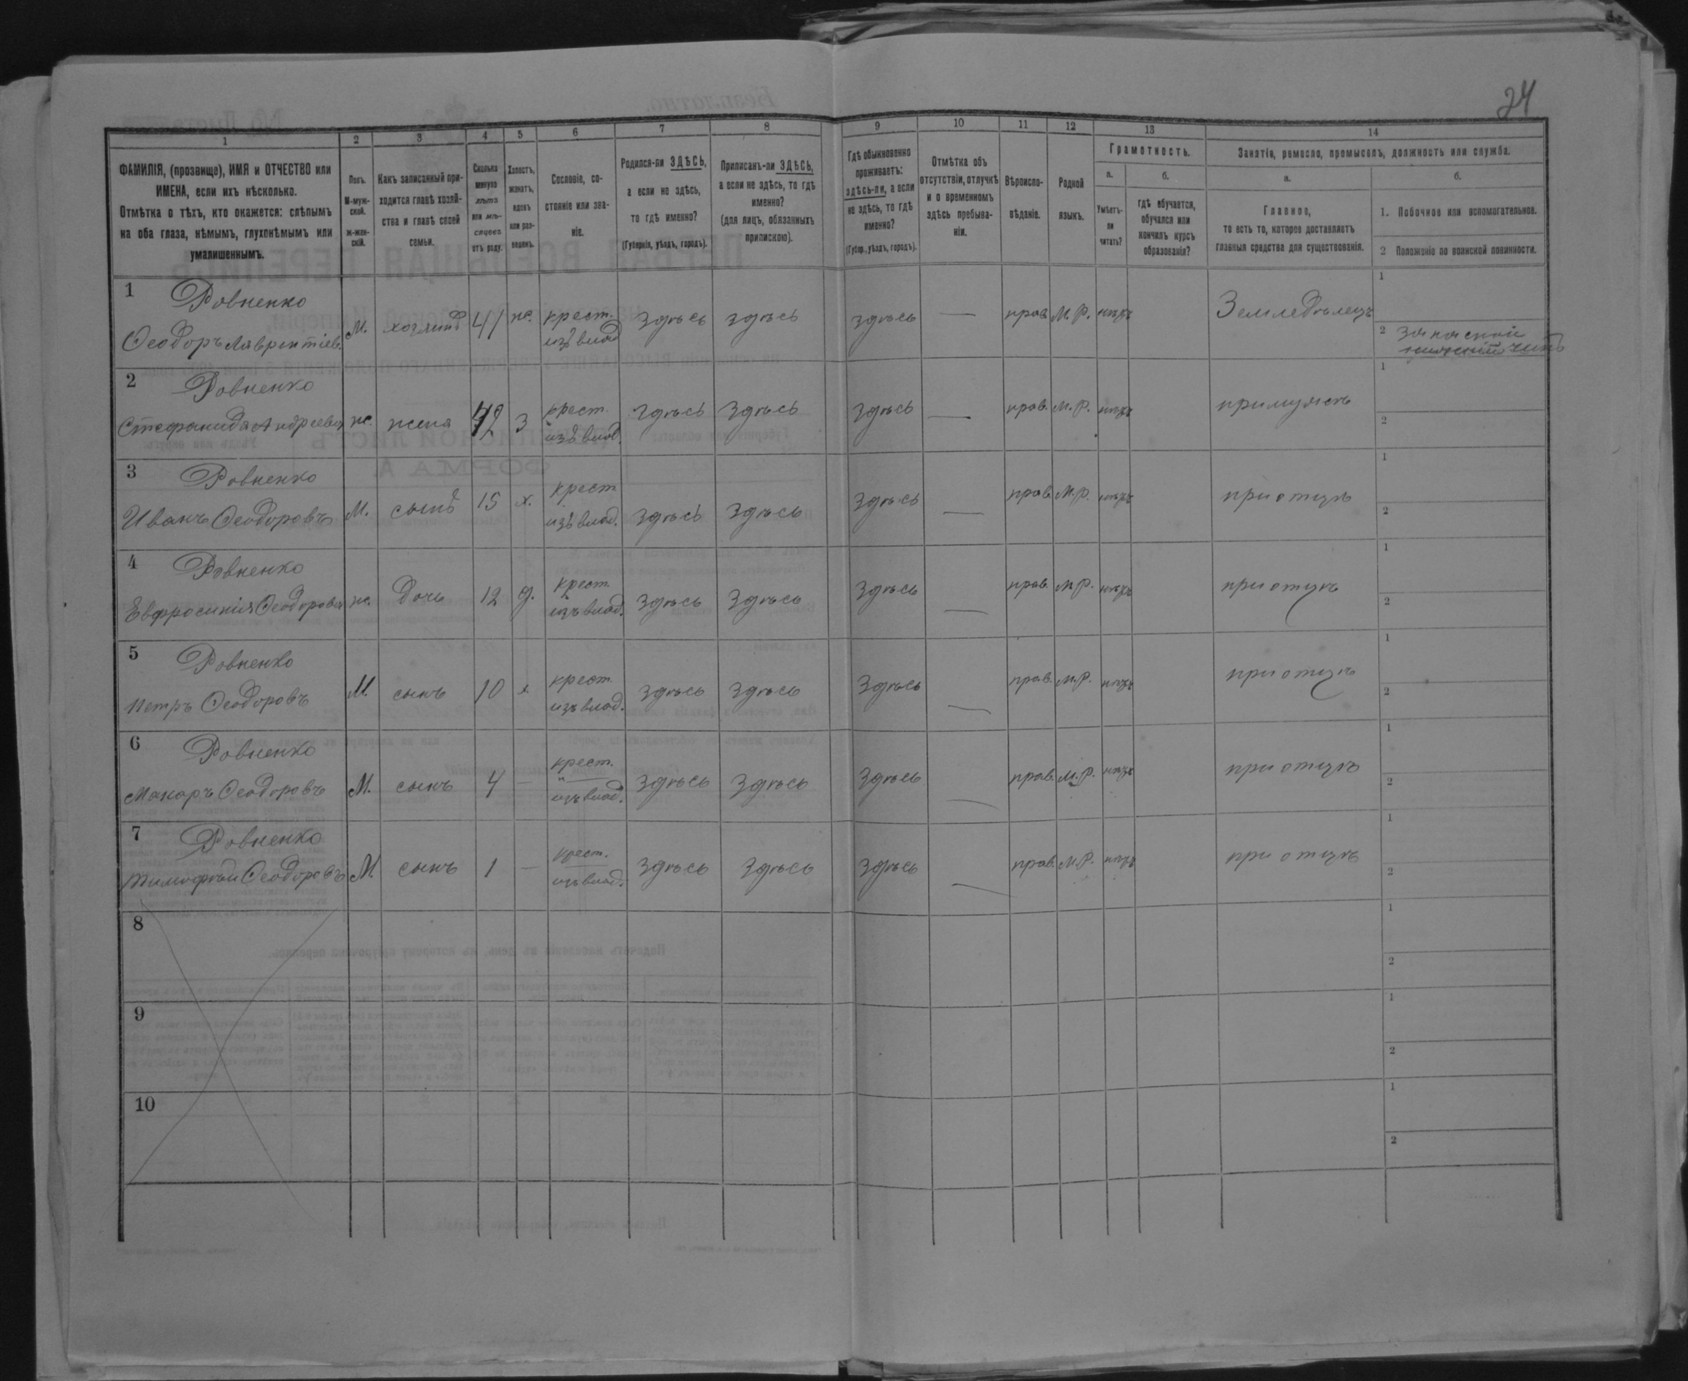 24
1 2 3 4 5 6 7 8 9 10 11 12 13 14
ФАМИЛІЯ, (прозвище), ИМЯ и ОТЧЕСТВО или
ИМЕНА, если ихъ нѣсколько.
Отмѣтка о тѣхъ, кто окажется: слѣпымъ
на оба глаза, нѣмымъ, глухонѣмымъ или
умалишеннымъ.
Полъ.
М-муж-
ской.
Ж-жен-
скій.
Какъ записанный при-
ходится главѣ хозяй-
ства и главѣ своей
семьи.
Сколько
минуло
лѣтъ
или мѣ-
сяцевъ
отъ роду.
Холостъ,
женатъ,
вдовъ
или раз-
веденъ.
Сословіе, со-
стояніе или зва-
ніе.
Родился-ли ЗДѢСЬ,
а если не здѣсь,
то гдѣ именно?
(Губернія, уѣздъ, городъ).
Приписанъ-ли ЗДѢСЬ,
а если не здѣсь, то гдѣ
именно?
(для лицъ, обязанныхъ
припискою).
Гдѣ обыкновенно
проживаетъ:
здѣсь-ли, а если
не здѣсь, то гдѣ
именно?
(Губер., уѣздъ, городъ).
Отмѣтка объ
отсутствіи, отлучкѣ
и о временномъ
здѣсь пребыва-
ніи.
Вѣроиспо-
вѣданіе.
Родной
языкъ.
Грамотность.
а.
Умѣетъ-
ли
читать?
б.
гдѣ обучается,
обучался или
кончилъ курсъ
образованія?
Занятіе, ремесло, промыселъ, должность или служба.
а.
Главное,
то есть то, которое доставляетъ
главныя средства для существованія.
б.
1. Побочное или вспомогательное.
2 Положеніе по воинской повинности.
1 Ровненко
Ѳеодоръ Лаврентіев. М. хозяинъ 41 ж. крест. изъ влад. здѣсь здѣсь здѣсь — прав. М.Р. нѣтъ Земледѣлецъ
1
2 запасной
нижній чинъ
2 Ровненко
Стефанида Андреевна ж. жена 42 з крест. изъ влад. здѣсь здѣсь здѣсь — прав. М.Р. нѣтъ при мужѣ
1
2
3 Ровненко
Иванъ Ѳеодоровъ М. сынъ 15 х. крест. изъ влад. здѣсь здѣсь здѣсь — прав. М.Р. нѣтъ при отцѣ
1
2
4 Ровненко
Евфросинія Ѳеодорова ж. дочь 12 д. крест. изъ влад. здѣсь здѣсь здѣсь — прав. М.Р. нѣтъ при отцѣ
1
2
5 Ровненко
Петръ Ѳеодоровъ М. сынъ 10 х. крест. изъ влад. здѣсь здѣсь здѣсь — прав. М.Р. нѣтъ при отцѣ
1
2
6 Ровненко
Макаръ Ѳеодоровъ М. сынъ 4 — крест. изъ влад. здѣсь здѣсь здѣсь — прав. М.Р. нѣтъ при отцѣ
1
2
7 Ровненко
Тимофѣй Ѳеодоровъ М сынъ 1 — крест. изъ влад. здѣсь здѣсь здѣсь — прав. М.Р. нѣтъ при отцѣ
1
2
8
1
2
9
1
2
10
1
2